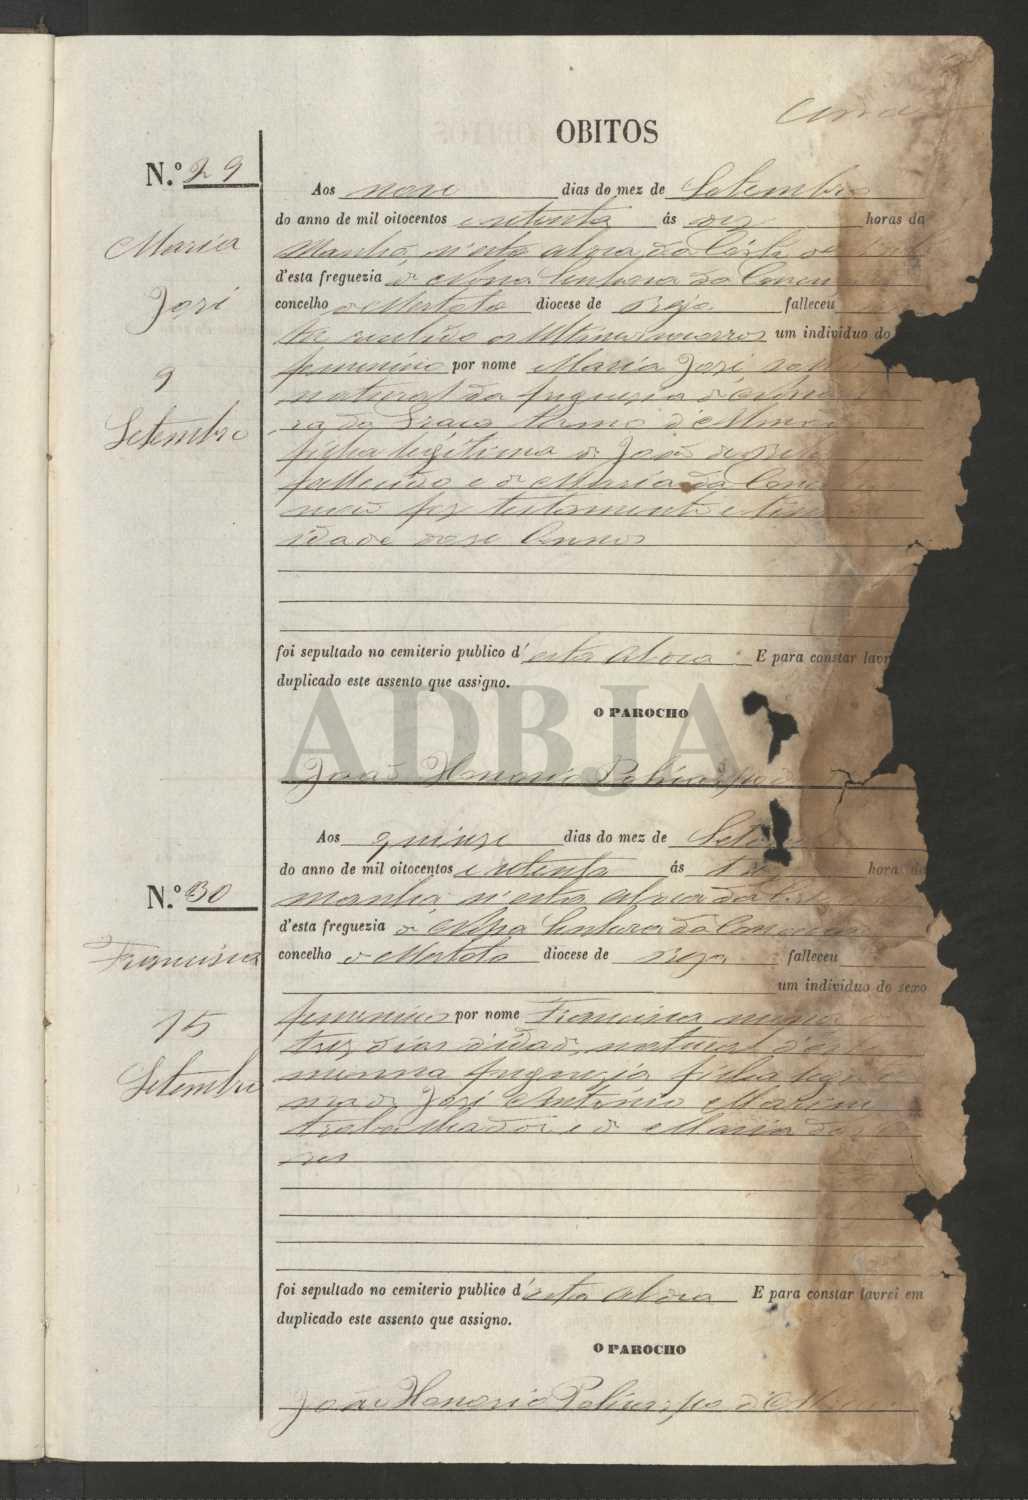 OBITOS
N.º 29
Maria
José
9
Setembro
Aos nove dias do mez de Setembro
do anno de mil oitocentos e setenta ás dez horas da
Manhã, n'esta aldea da
d'esta freguezia de Nossa Senhora da Concei
concelho de Mertola diocese de Beja falleceu
recebido os Ultimos socorros um individuo do
femenino por nome Maria José
natural da freguesia de
ra da Graca termo d
filha legitima de João de
fallecido e de Maria da Conc
não fez testamento e tinha de
idade dose Annos
foi sepultado no cemiterio publico d'esta aldea E para constar lavr
duplicado este assento que assigno.
O PAROCHO
João Honorio Policarpo d
ADBJA
N.º 30
Francisca
15
Setembro
Aos quinze dias do mez de Sete
do anno de mil oitocentos e setenta ás horas da
manhã n'esta aldea da
d'esta freguezia de Nossa Senhora da Concei
concelho de Mertola diocese de Beja falleceu
um individuo do sexo
femenino por nome Francisca
trez dias d'idade, natural d'esta
mesma freguezia filha legiti
ma de José Antonio Martins
trabalhador e de Maria
res
foi sepultado no cemiterio publico d'esta aldea E para constar lavrei em
duplicado este assento que assigno.
O PAROCHO
João Honorio Policarpo d'